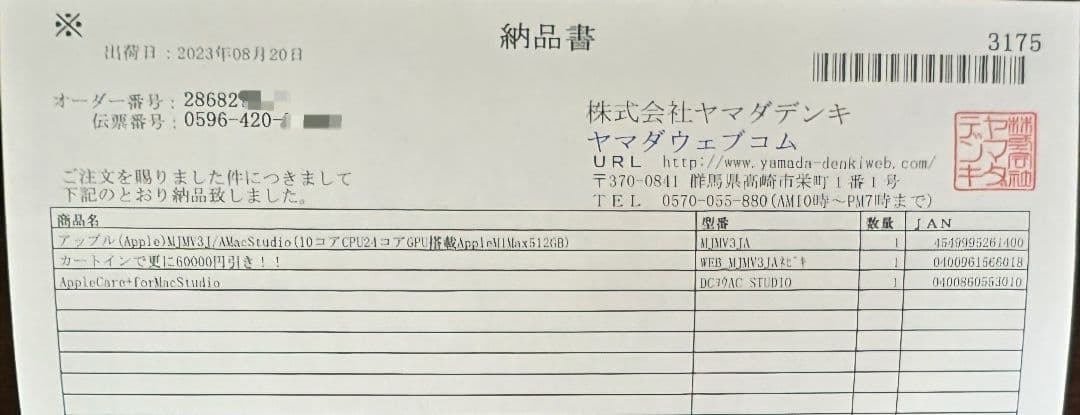 ※
納品書
3175
出荷日：2023年08月20日
オーダー番号：28682
伝票番号：0596-420-
株式会社ヤマダデンキ
ヤマダウェブコム
URL http://www.yamada-denkiweb.com/
〒370-0841 群馬県高崎市栄町1番1号
TEL 0570-055-880(AM10時～PM7時まで)
株式会社
ヤマダ
デンキ
ご注文を賜りました件につきまして
下記のとおり納品致しました。
商品名 型番 数量 JAN
アップル(Apple)MJMV3J/AMacStudio(10コアCPU24コアGPU搭載AppleM1Max512GB) MJMV3JA 1 4549995261400
カートインで更に60000円引き！！ WEB_MJMV3JAﾈﾋﾞｷ 1 0400961566018
AppleCare+forMacStudio 1 0400860553010